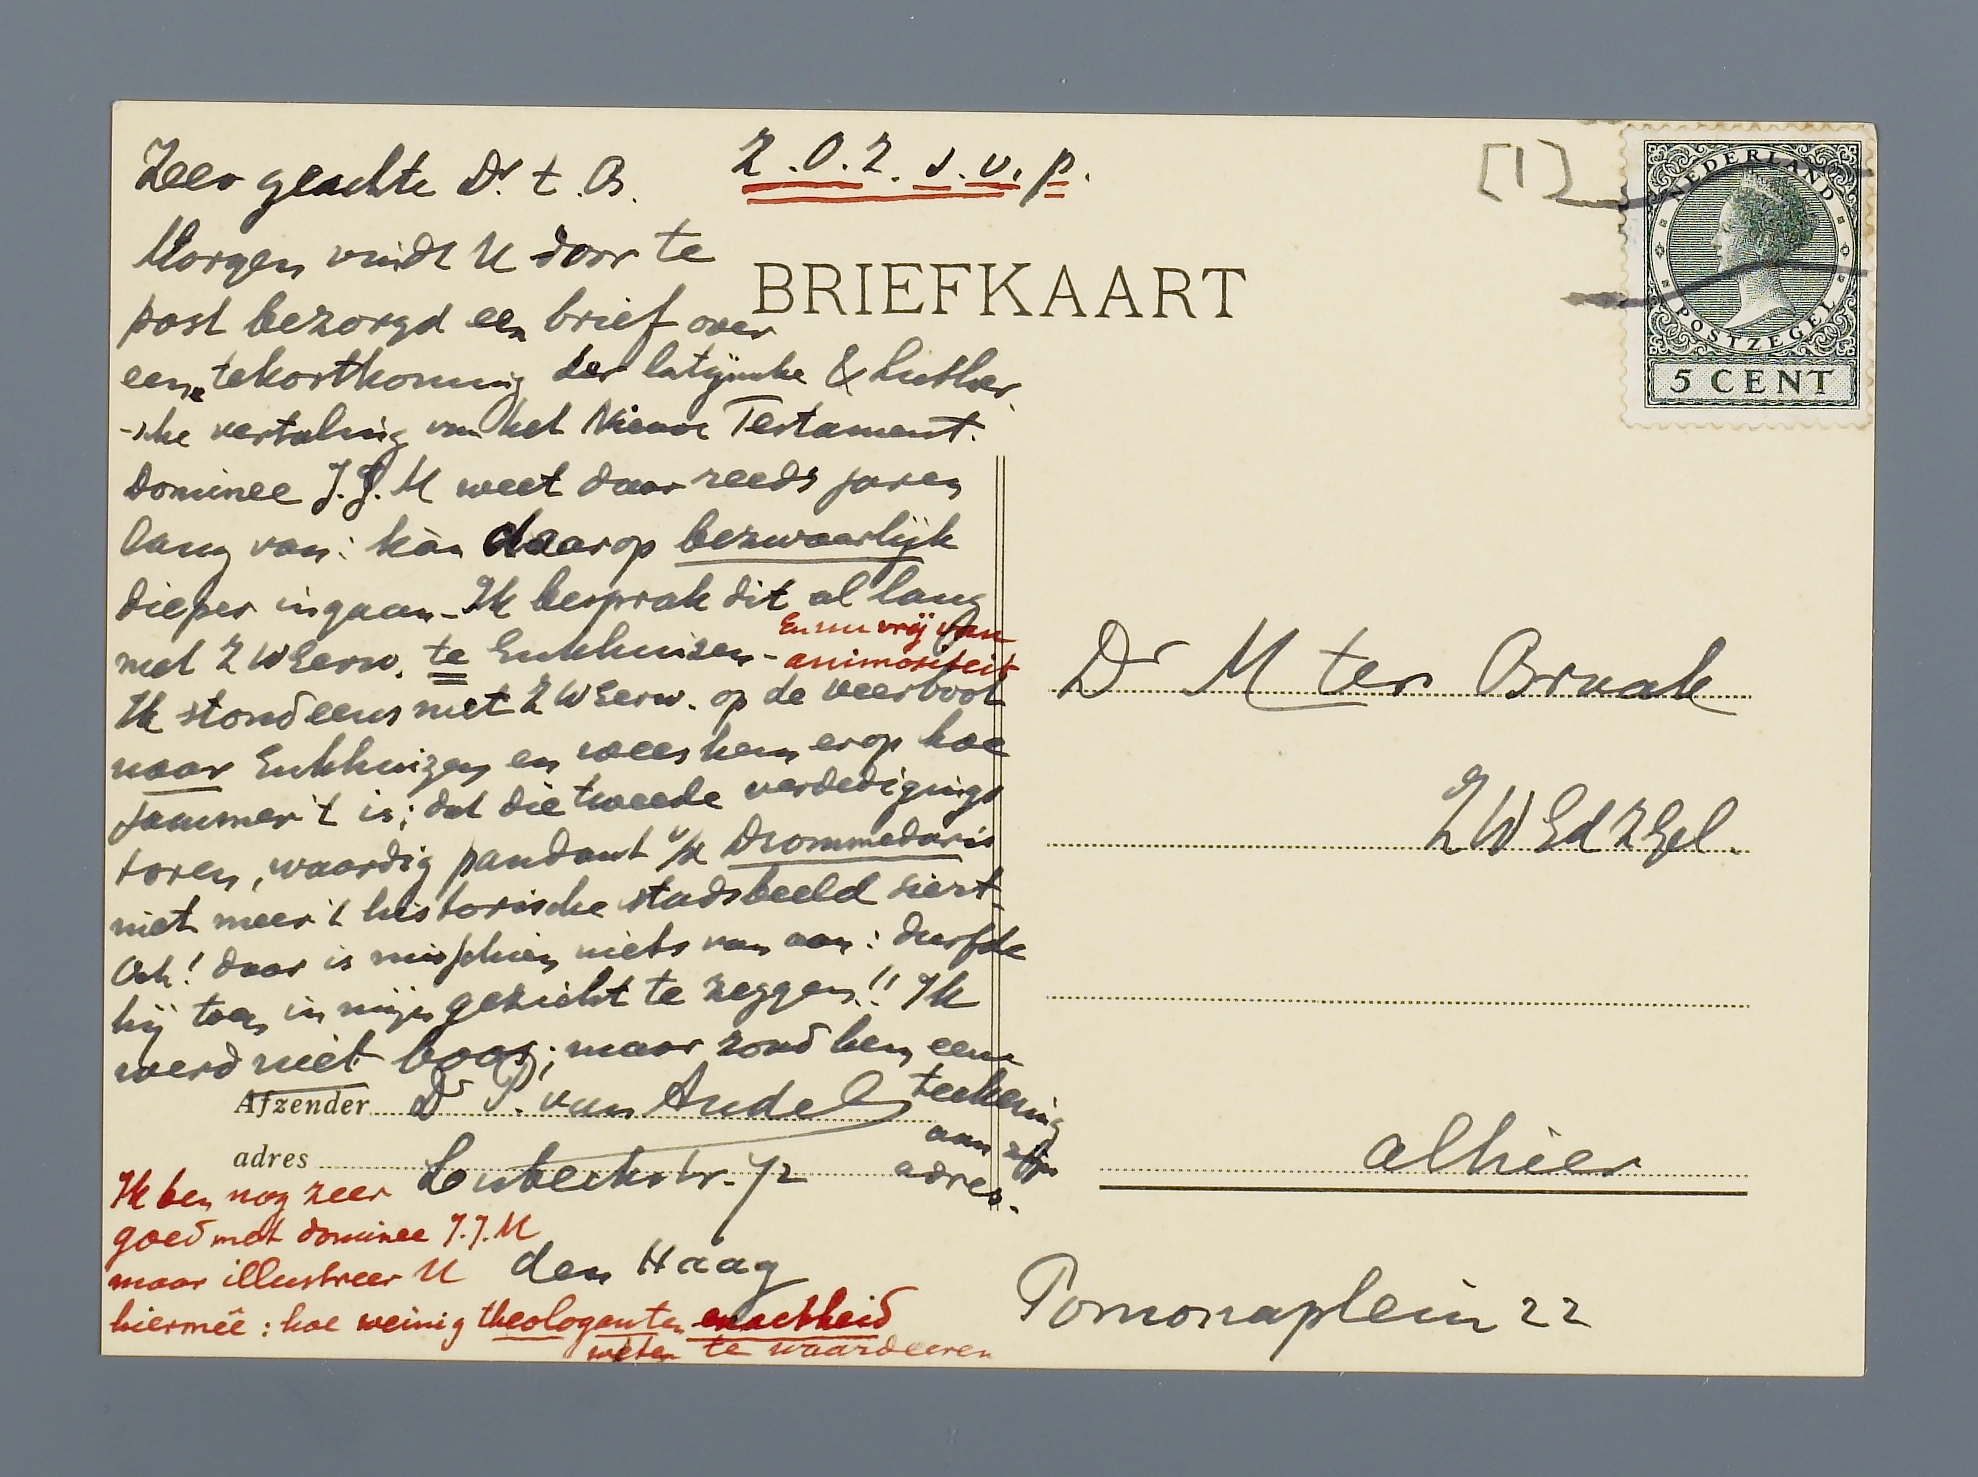 Zeer geachte Dr t. B.
Z.O.Z. s.v.p.
[1]
Morgen vindt U door te
post bezorgd een brief over
een tekortkoming der latijnsche & Luther
-sche vertaling van het Nieuwe Testament.
Dominee J.J. M weet daar reeds jaren
lang van: kàn daarop bezwaarlijk
dieper ingaan - Ik besprak dit al lang
met ZWEerw. te Enkhuizen -
En nu vrij van
animositeit
Ik stond eens met ZWEerw. op de veerboot
naar Enkhuizen en wees hem erop hoe
jammer 't is; dat die tweede verdedigings
toren, waardig pendant v/d Drommedaris
niet meer 't historische stadsbeeld siert -
Och! daar is misschien niets van aan: durfde
hij toen in mijn gezicht te zeggen!! Ik
werd niet boos; maar zond hem eene
teekening
aan
adres.
BRIEFKAART
NEDERLAND
POSTZEGEL
5 CENT
Dr M ter Braak
ZWEdZGel.
alhier
Pomonaplein 22
Afzender Dr P. van Andel
adres Lubeckstr. 72
den Haag
Ik ben nog zeer
goed met dominee J.J. M
maar illustreer U
hiermêe: hoe weinig theologanten exactheid
weten te waardeeren